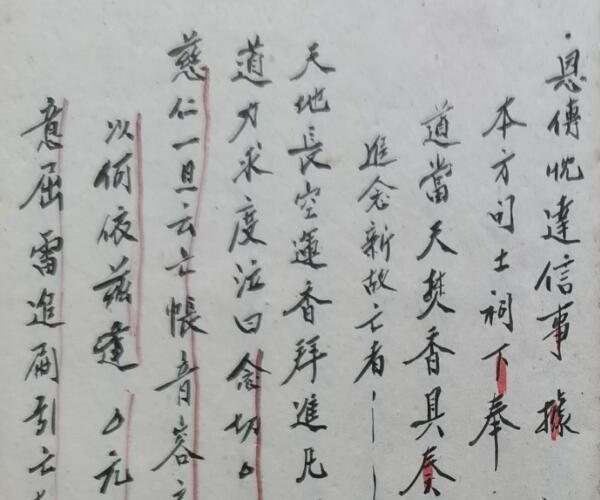 恩傳悅達信事據
本方司土祠下奉
道當天焚香具奏
進念新故亡者
天地長空運香拜進凡
道力求度泣曰念切
慈仁一旦云亡帳音容
以何依茲逢 元
意屈雷追刷引亡